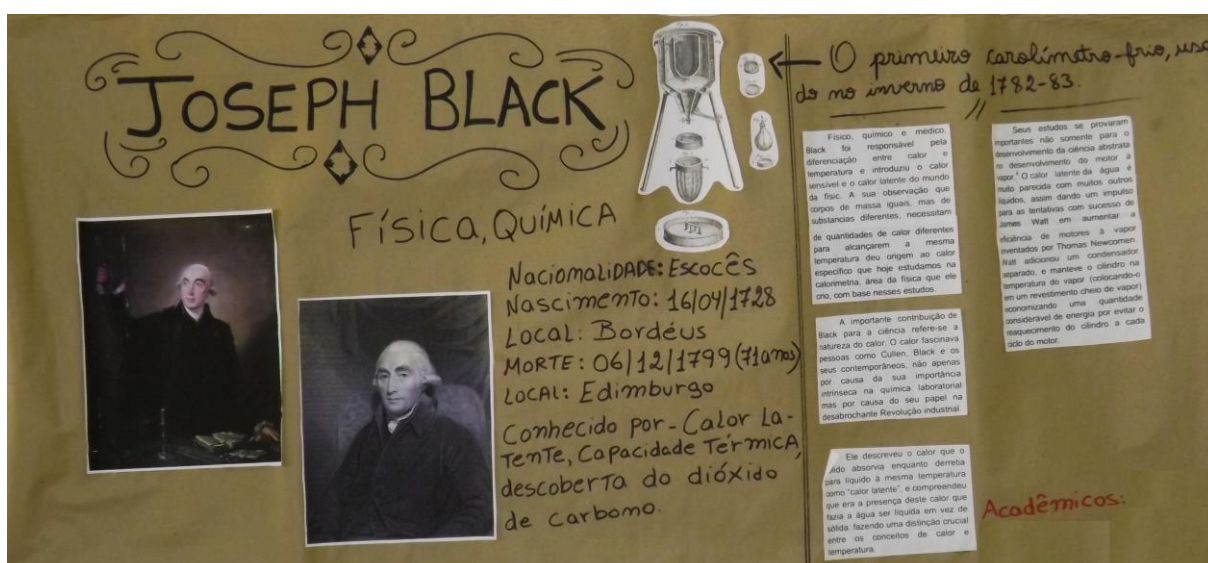 JOSEPH BLACK
FÍSICA, QUÍMICA
NacionaLiDADE: Escocês
Nascimento: 16/04/1728
Local: Bordéus
MORTE: 06/12/1799 (71 anos)
LOCAL: Edimburgo
Conhecido por - Calor La-
TenTe, Capacidade TérmicA,
descoberta do dióxido
de carbono.
O primeiro carolímetro-frio, usa
do no inverno de 1782-83.
Físico, químico e médico,
Black foi responsável pela
diferenciação entre calor e
temperatura e introduziu o calor
sensível e o calor latente do mundo
da físic. A sua observação que
corpos de massa iguais, mas de
substancias diferentes, necessitam
de quantidades de calor diferentes
para alcançarem a mesma
temperatura deu origem ao calor
específico que hoje estudamos na
calorimetria, área da física que ele
crio, com base nesses estudos.
A importante contribuição de
Black para a ciência refere-se a
natureza do calor. O calor fascinava
pessoas como Cullen, Black e os
seus contemporâneos, não apenas
por causa da sua importância
intrínseca na química laboratorial
mas por causa do seu papel na
desabrochante Revolução industrial.
Ele descreveu o calor que o
sólido absorvia enquanto derretia
para líquido à mesma temperatura
como "calor latente", e compreendeu
que era a presença deste calor que
fazia a água ser líquida em vez de
sólida, fazendo uma distinção crucial
entre os conceitos de calor e
temperatura.
Seus estudos se provaram
importantes não somente para o
desenvolvimento da ciência abstrata
no desenvolvimento do motor a
vapor." O calor latente da água é
muito parecida com muitos outros
líquidos, assim dando um impulso
para as tentativas com sucesso de
James Watt em aumentar a
eficiência de motores à vapor
inventados por Thomas Newcomen.
Watt adicionou um condensador
separado, e manteve o cilindro na
temperatura do vapor (colocando-o
em um revestimento cheio de vapor)
economizando uma quantidade
considerável de energia por evitar o
reaquecimento do cilindro a cada
ciclo do motor.
Acadêmicos: